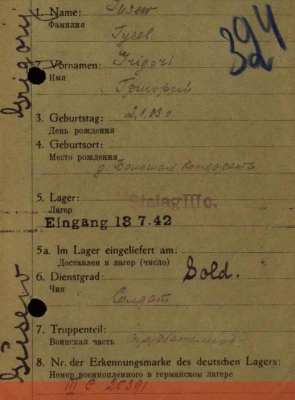 394
Grigorij
Gusew
1. Name: Gusew
Фамилия
Гусев
2. Vornamen: Grigori
Имя
Григорий
3. Geburtstag: 2.1.03 г.
День рождения
4. Geburtsort:
Место рождения
д. Большая
5. Lager: Stalag III c.
Лагер
Eingang 13 7.42
5a. Im Lager eingeliefert am:
Доставлен в лагер (число)
6. Dienstgrad: Sold.
Чин
Солдат
7. Truppenteil:
Воинская часть
8. Nr. der Erkennungsmarke des deutschen Lagers:
Номер военнопленного в германском лагере
III C